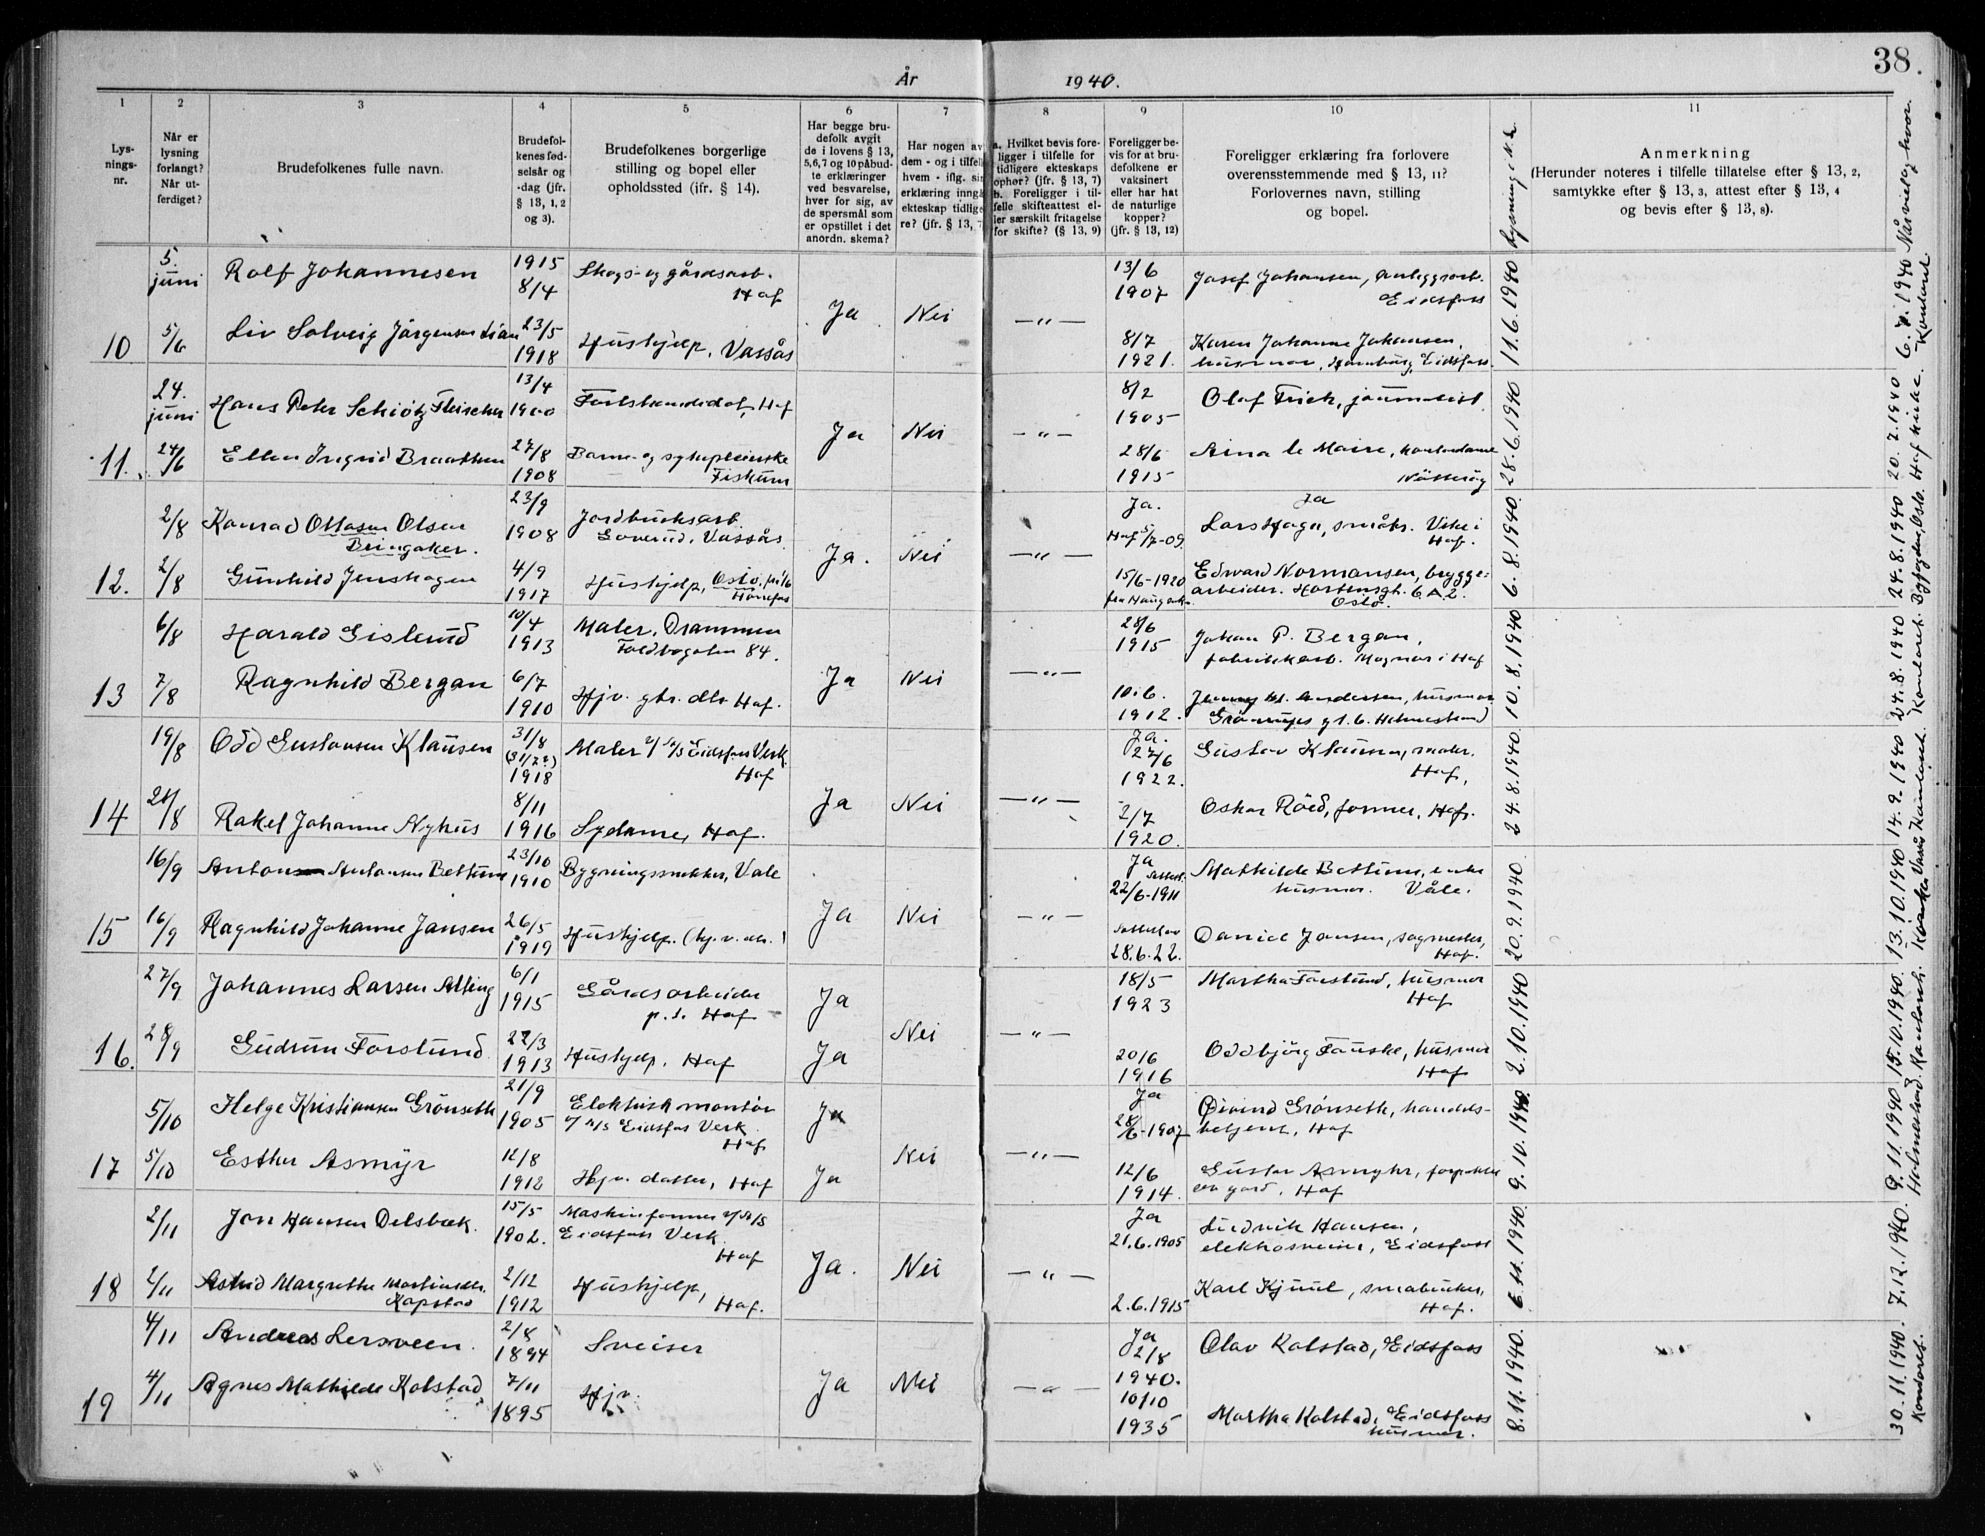 38.
År 1940.
1 2 3 4 5 6 7 8 9 10 11
Lys-
nings-
nr.
Når er
lysning
forlangt?
Når ut-
ferdiget?
Brudefolkenes fulle navn.
Brudefol-
kenes fød-
selsår og
-dag (jfr.
§ 13, 1, 2
og 3).
Brudefolkenes borgerlige
stilling og bopel eller
opholdssted (ifr. § 14).
Har begge bru-
defolk avgit
de i lovens § 13,
5,6,7 og 10 påbud-
te erklæringer
ved besvarelse,
hver for sig, av
de spørsmål som
er opstillet i det
anordn. skema?
Har nogen av
dem - og i tilfelle
hvem - iflg. sin
erklæring inngå
ekteskap tidlige
re? (jfr. § 13, 7
a. Hvilket bevis fore-
ligger i tilfelle for
tidligere ekteskaps
ophør? (jfr. § 13, 7)
b. Foreligger i til-
felle skifteattest el-
ler særskilt fritagelse
for skifte? (§ 13, 9)
Foreligger be-
vis for at bru-
defolkene er
vaksinert
eller har hat
de naturlige
kopper?
(jfr. § 13, 12)
Foreligger erklæring fra forlovere
overensstemmende med § 13, 11?
Forlovernes navn, stilling
og bopel.
Anmerkning
(Herunder noteres i tilfelle tillatelse efter § 13, 2,
samtykke efter § 13, 3, attest efter § 13, 4
og bevis efter § 13, 8).
Når viet og hvor.
5.
juni Rolf Johannesen 1915 8/4 Skogs- og gårdsarb. Hof 13/6 1907 Josef Johansen, anleggsarb. Eidsfoss
10 5/6 Liv Solveig Jørgensen Lian 23/5 1918 Hushjelp, Vassås Ja Nei — " — 8/7 1921. Karen Johanne Johansen, husmor, Eidsfoss. 11.6.1940 6.7.1940 Kontoret
24.
juni Hans Peter Schiøtz Fleischer 13/4 1900 Forstkandidat, Hof 8/2 1905 Olaf Frich, journalist
11. 24/6 Ellen Ingrid Braathen 27/8 1908 Barne- og sykepleierske Fiskum Ja Nei — " — 28/6 1915 Aina le Maire, kontordame Nøtterøy 28.6.1940 20.7.1940 Hof kirke.
2/8 Konrad Ottosen Olsen Bringaker. 23/9 1908 Jordbruksarb. Goverud, Vassås. Ja. Hof 5/7-09 Ja Lars Haga, småbr. Vike i Hof.
12. 2/8 Gunhild Jenshagen 4/9 1917 Hushjelp, Oslo, Hønefoss Ja. Nei — " — 15/6-1920 Edvard Normansen, brygge-
arbeider. Hortensgt. 6 A.2. Oslo. 6.8.1940. 24.8.1940 Byfogden, Oslo.
6/8 Harald Gislerud 10/4 1913 Maler, Drammen 84. 28/6 1915 Johan P. Bergan, fabrikkarb. Magnor i Hof
13 7/8 Ragnhild Bergan 6/7 1910 Hjv. gbr. dtr. Hof. Ja Nei — " — 10.6. 1912. Jenny M. Andersen, husmor gt. 6. Holmestrand 10.8.1940 24.8.1940 Kontoret.
19/8 Odd Gustavsen Klausen 31/8 (31/7?) 1918 Maler v/ A/S Eidsfos Verk. Hof Ja. 27/6 1922. Gustav Klausen, maler. Hof,
14 21/8 Rakel Johanne Nyhus 8/11 1916 Sydame, Hof. Ja Nei — " — 2/7 1920. Oskar Röed, former, Hof. 24.8.1940. 14.9.1940
16/9 Anton Antonsen Bettum 23/10 1910 Bygningssnekker, Våle Ja Attest. 22/6-1911 Mathilde Bettum, enke husmor. Våle.
15 16/9 Ragnhild Johanne Jansen 26/5 1919 Hushjelp. (hj.v. dtr.) Ja Nei — " — 28.6.22. Daniel Jansen, sagmester, Hof. 20.9.1940 13.10.1940
27/9 Johannes Larsen 6/1 1915 Gårdsarbeider p.t. Hof Ja 18/5 1923 Martha Forslund, husmor Hof
16. 28/9 Gudrun Forslund 27/3 1913 Hushjelp. Hof Ja Nei — " — 20/6 1916 Oddbjörg Fauske, husmor Hof 2.10.1940 15.10.1940.
5/10 Helge Kristiansen Grönseth 21/9 1905 Elektrisk montör v/ A/S Eidsfos Verk. Hof Ja Ja 28/6-1907 Øivind Grönseth, handels-
betjent, Hof
17 5/10 Esther Asmyr 12/8 1912 Hjv. datter, Hof Ja Nei — " — 12/6 1914. Gustav Asmyhr, forpakter av gård, Hof 9.10.1940. 9.11.1940
2/11 Jon Hansen Delsbæk. 15/5 1902. Maskinformer v/ A/S Eidsfoss Verk. Hof Ja 21.6.1905 Ludvik Hansen, elektrosveiser, Eidsfoss
18 2/11 Astrid Margrethe Martinsdtr. Kopstad 2/12 1912 Hushjelp, Hof. Ja. Nei — " — 2.6.1915 Karl Kjuul, småbruker, Hof. 6.11.1940. 7.12.1940.
4/11 Andreas Lersveen. 2/8 1894 Sveiser Ja 2/8 1940. Olav Kolstad, Eidsfoss
19 4/11 Agnes Mathilde Kolstad 7/11 1895 Hjv. Ja Nei — " — 10/10 1935 Martha Kolstad, Eidsfoss husmor. 8.11.1940. 30.11.1940. Kontoret.